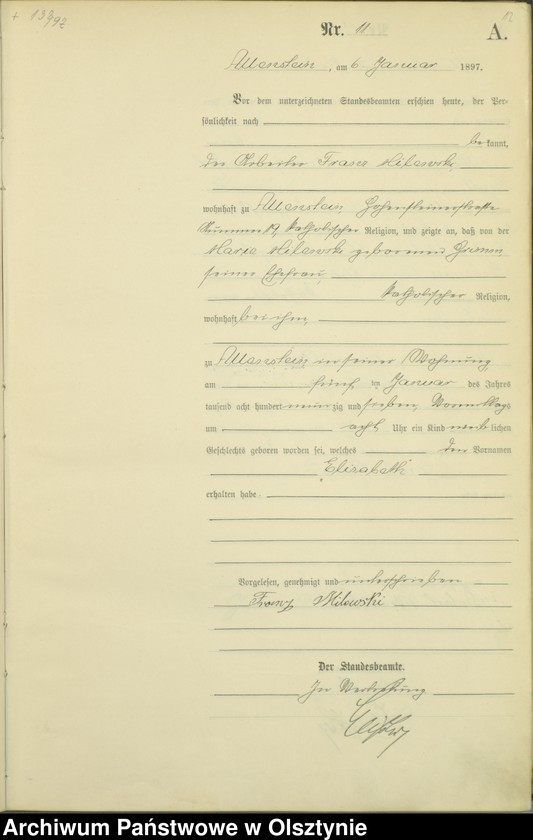 Nr. 11
A.
Allenstein, am 6. Januar 1897.
Vor dem unterzeichneten Standesbeamten erschien heute, der Per-
sönlichkeit nach
bekannt,
der Arbeiter Franz Milewski
wohnhaft zu Allenstein, Hohensteinerstraße
Nummer 19, katholischer Religion, und zeigte an, daß von der
Marie Milewski geborenen
seiner Ehefrau,
katholischer Religion,
wohnhaft bei ihm,
zu Allenstein in seiner Wohnung
am fünften Januar des Jahres
tausend acht hundert neunzig und sieben, Vormittags
um acht Uhr ein Kind weiblichen
Geschlechts geboren worden sei, welches den Vornamen
Elisabeth
erhalten habe
Vorgelesen, genehmigt und unterschrieben
Franz Milewski
Der Standesbeamte.
In Vertretung
Archiwum Państwowe w Olsztynie